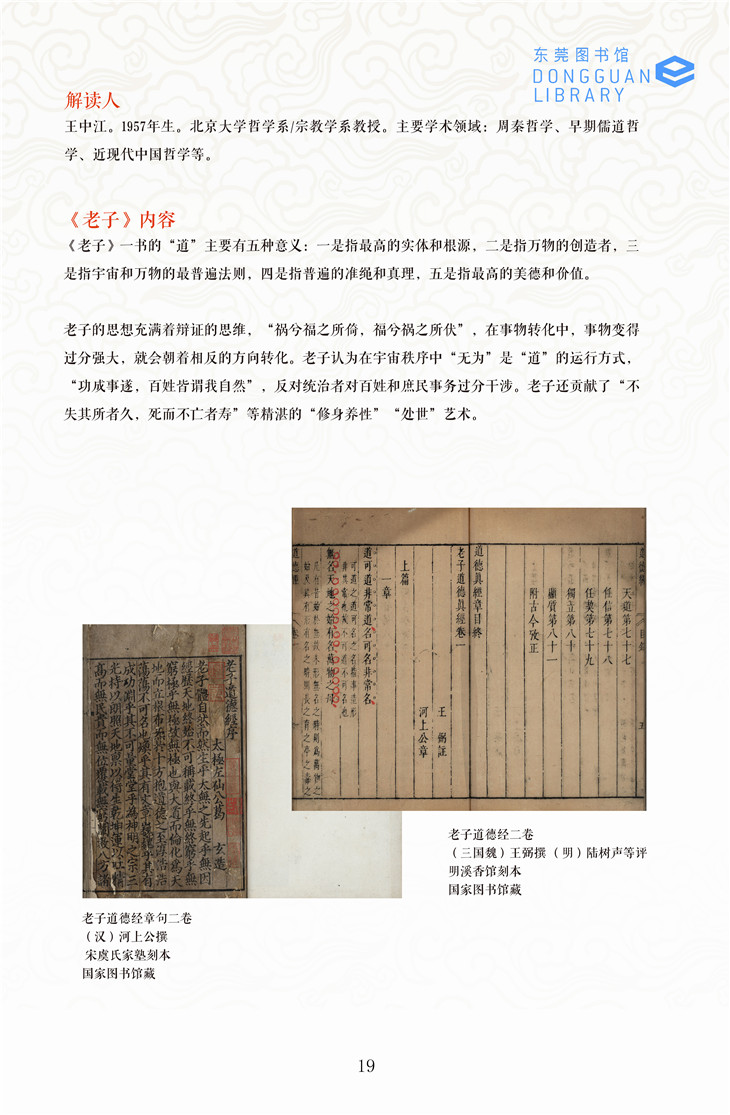 东莞图书馆
DONGGUAN
LIBRARY
解读人
王中江。1957年生。北京大学哲学系/宗教学系教授。主要学术领域：周秦哲学、早期儒道哲
学、近现代中国哲学等。
《老子》内容
《老子》一书的“道”主要有五种意义：一是指最高的实体和根源，二是指万物的创造者，三
是指宇宙和万物的最普遍法则，四是指普遍的准绳和真理，五是指最高的美德和价值。
老子的思想充满着辩证的思维，“祸兮福之所倚，福兮祸之所伏”，在事物转化中，事物变得
过分强大，就会朝着相反的方向转化。老子认为在宇宙秩序中“无为”是“道”的运行方式，
“功成事遂，百姓皆谓我自然”，反对统治者对百姓和庶民事务过分干涉。老子还贡献了“不
失其所者久，死而不亡者寿”等精湛的“修身养性”“处世”艺术。
天道第七十七
任信第七十八
任契第七十九
獨立第八十
顯質第八十一
附古今攷正
道德眞經章目終
老子道德眞經卷一
王弼註
河上公章
上篇
一章
道可道非常道名可名非常名
無名天地之始有名萬物之母
老子道德經序
太極左仙公葛玄造
老子體自然而然生乎太無之先起乎無因
經歷天地終始不可稱載終乎無終窮乎無
窮極乎無極故無極也與大道而倫化為天
地而立根布炁於十方抱道德之至淳浩浩
蕩蕩不可名也
老子道德经二卷
（三国魏）王弼撰（明）陆树声等评
明溪香馆刻本
国家图书馆藏
老子道德经章句二卷
（汉）河上公撰
宋虞氏家塾刻本
国家图书馆藏
19